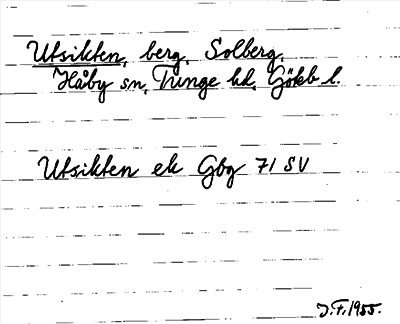 Utsikten, berg, Solberg,
Håby sn, Tunge hd, Göteb l.
Utsikten ek Gbg 71 SV
J.F. 1955.